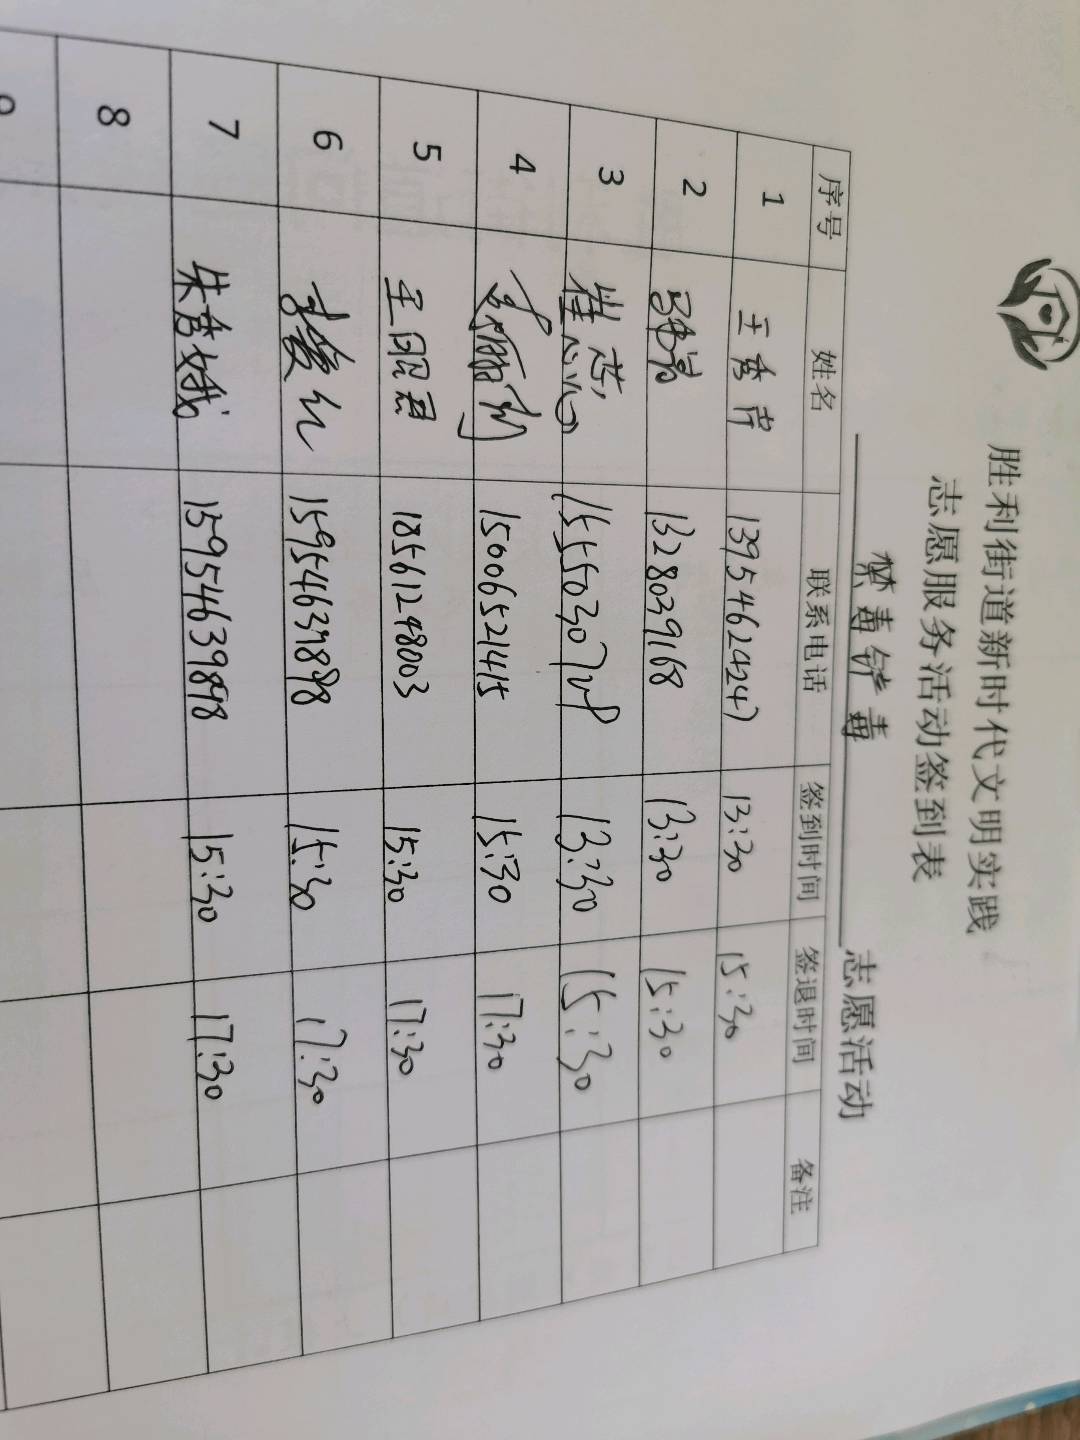 胜利街道新时代文明实践
志愿服务活动签到表
禁毒铲毒 志愿活动
序号 姓名 联系电话 签到时间 签退时间 备注
1 王秀芹 13954624247 13:30 15:30
2 1328039168 13:30 15:30
3 崔芯心 13:30 15:30
4 15006521415 15:30 17:30
5 王昭君 18561248003 15:30 17:30
6 15954639898 15:30 17:30
7 朱香娥 15954639898 15:30 17:30
8
9